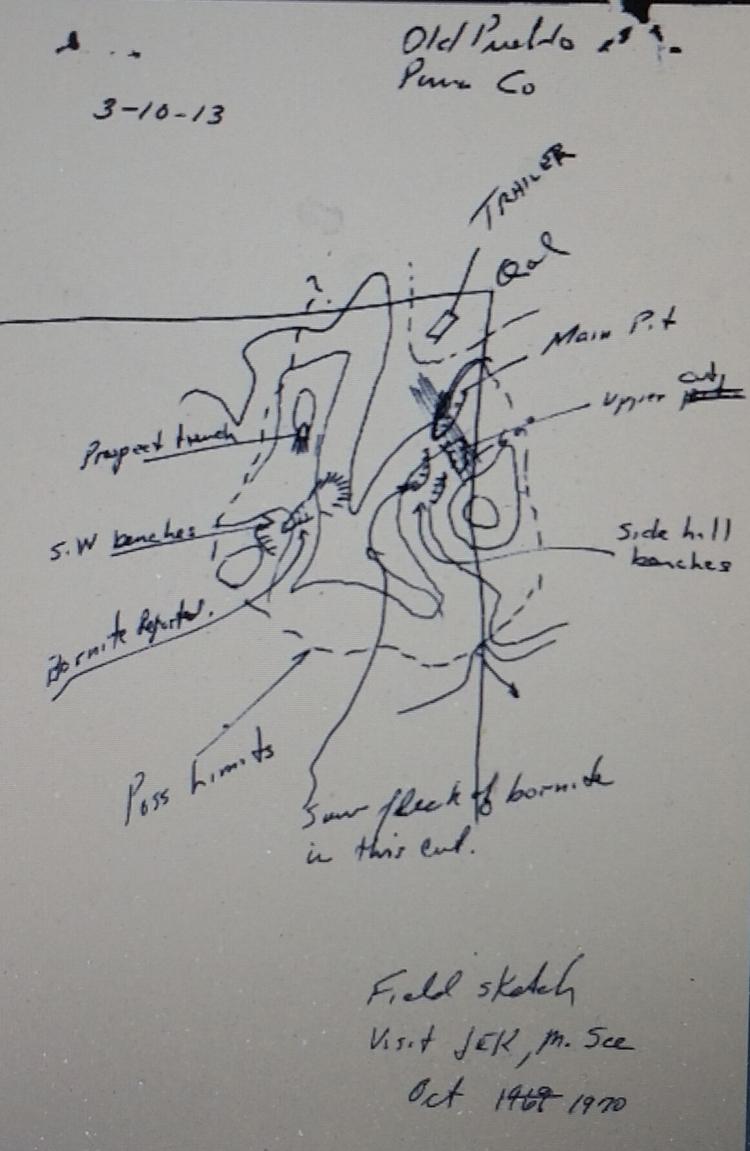 Old Pueblo
Pima Co
3-10-13
TRAILER
Qal
?
Main Pit
Upper cuts
Prospect trench
S.W benches
Side hill
benches
Bornite Reported.
Poss Limits
Saw fleck of bornite
in this cut.
Field sketch
Visit JEK, M. See
Oct 1969 1970